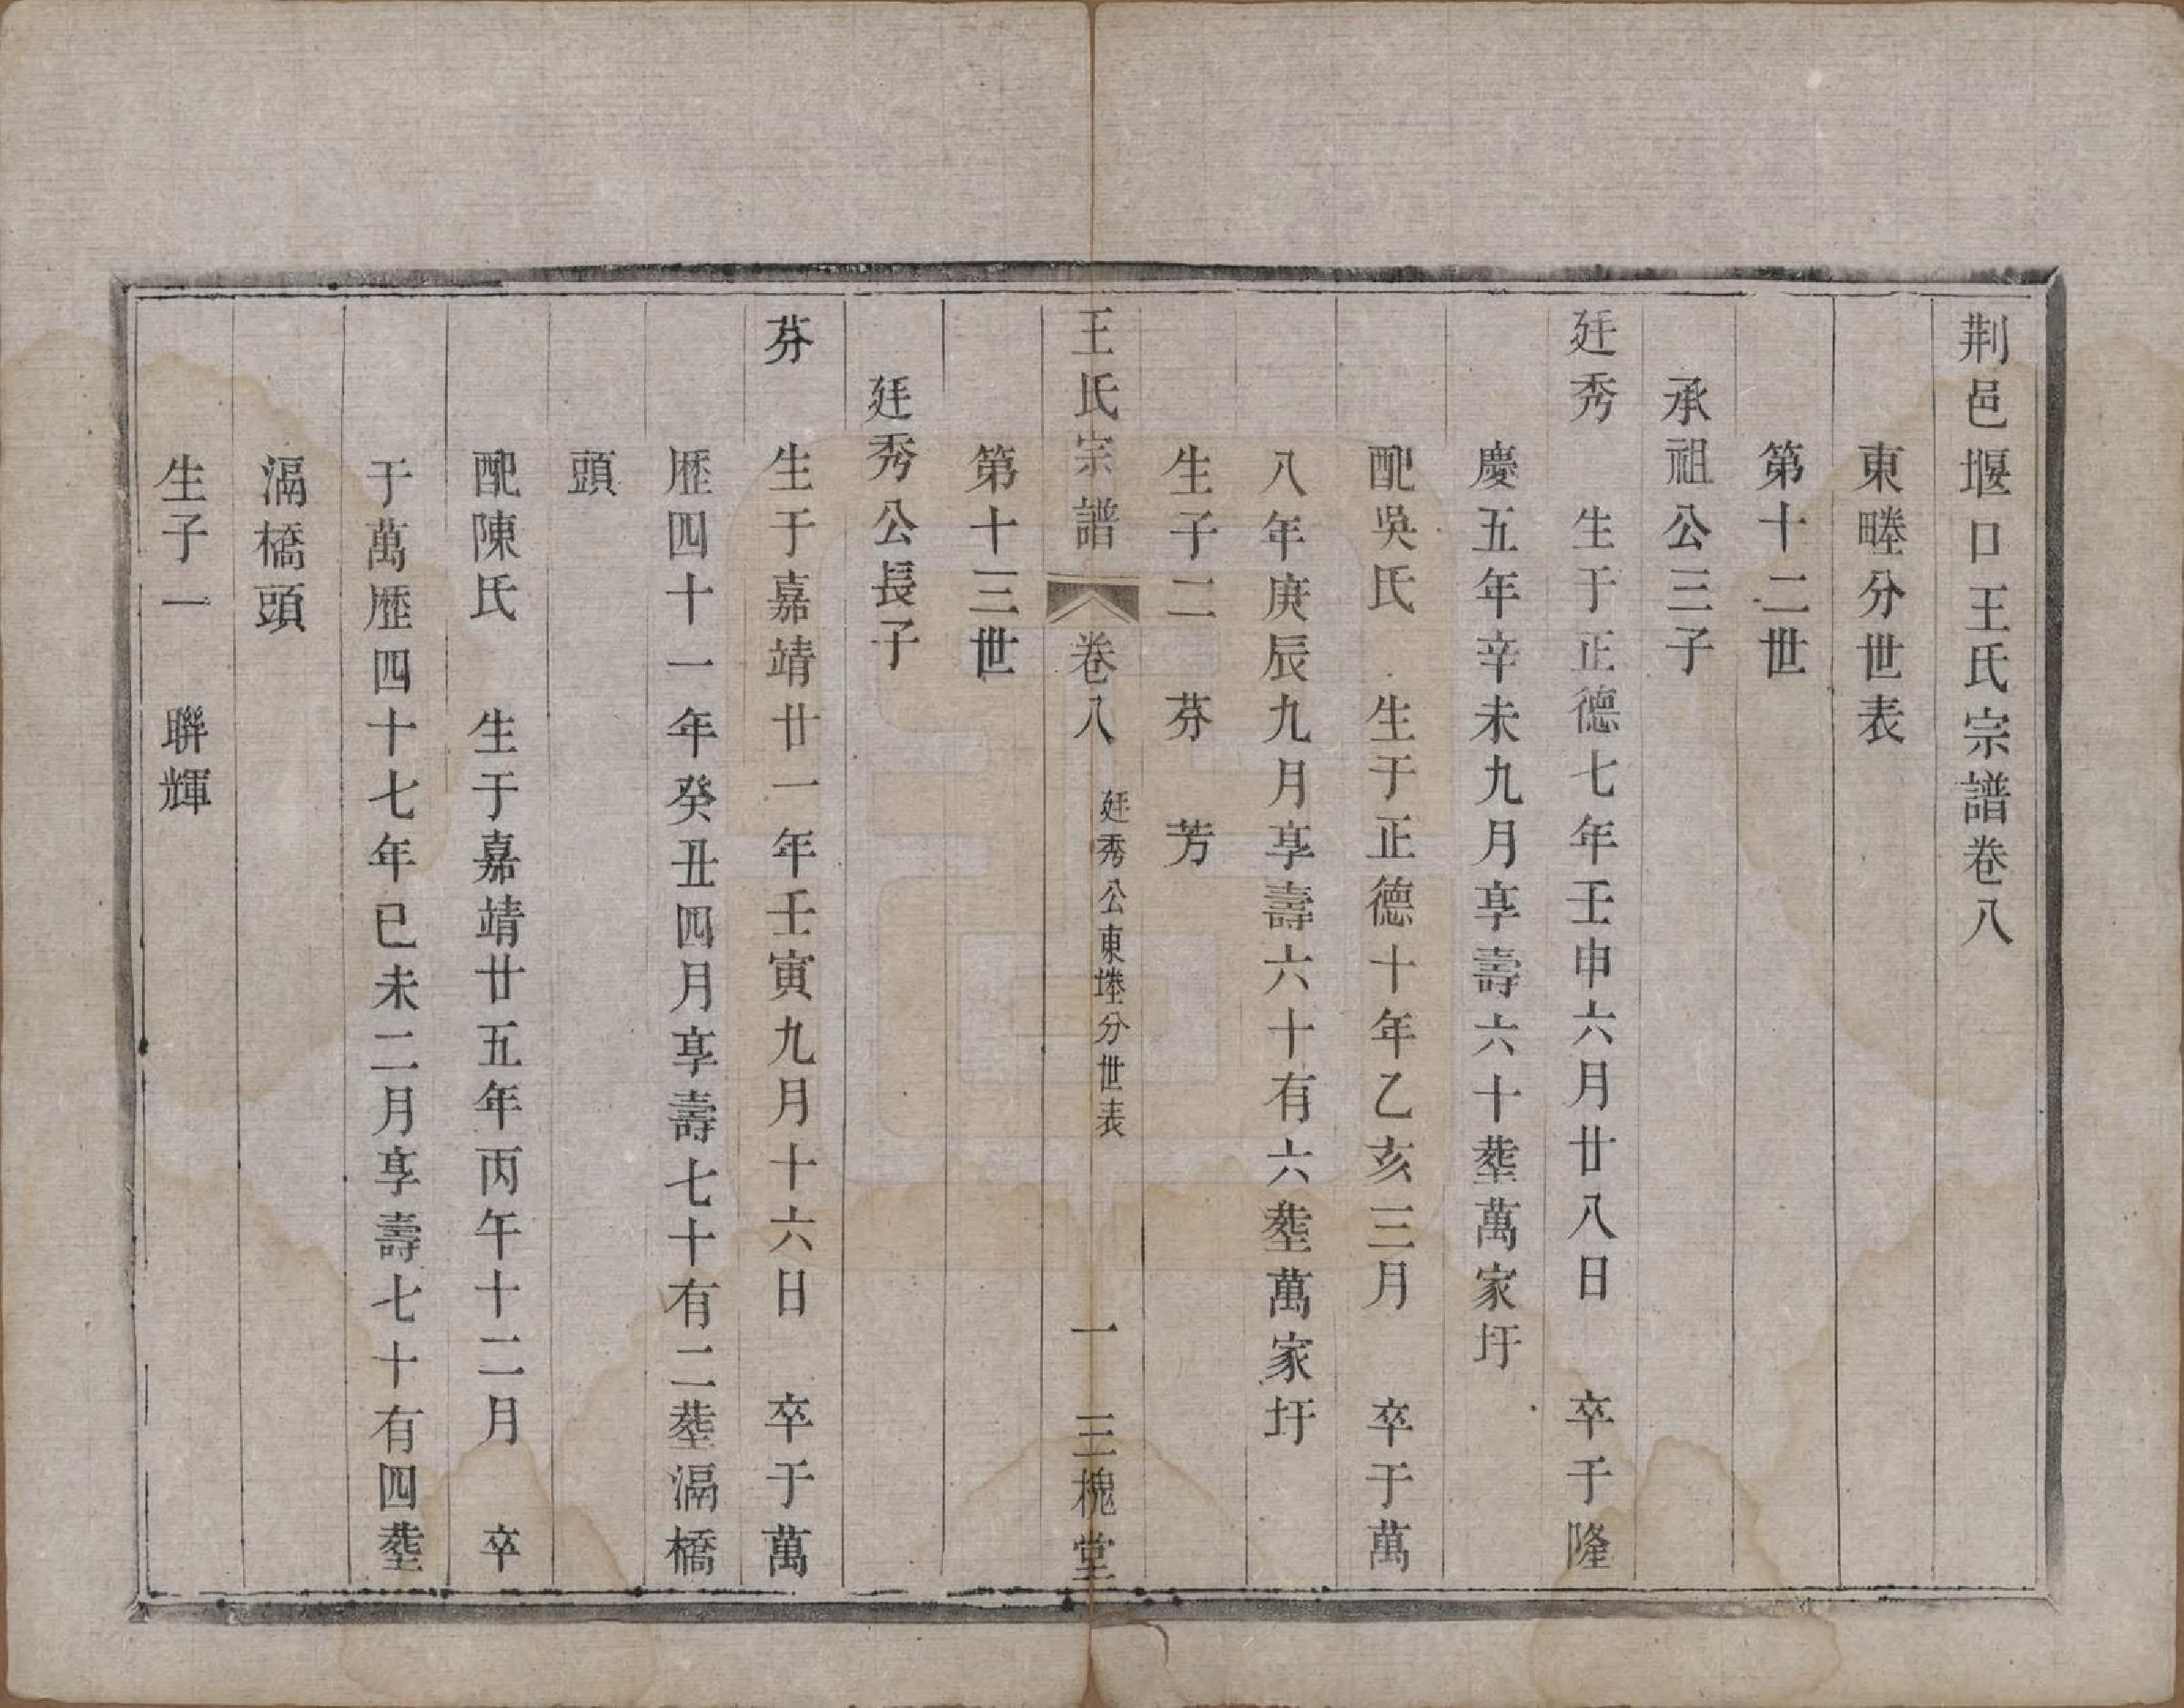 荆邑堰口王氏宗譜卷八
東㽩分世表
第十二世
承祖公三子
廷秀 生于正德七年壬申六月廿八日 卒于隆
慶五年辛未九月享壽六十塟萬家圩
配吳氏 生于正德十年乙亥三月 卒于萬
八年庚辰九月享壽六十有六塟萬家圩
生子二 芬 芳
王氏宗譜 卷八 廷秀公東塍分世表 一 三槐堂
第十三世
廷秀公長子
芬 生于嘉靖廿一年壬寅九月十六日 卒于萬
歷四十一年癸丑四月享壽七十有二塟滆橋
頭
配陳氏 生于嘉靖廿五年丙午十二月 卒
于萬歷四十七年己未二月享壽七十有四塟
滆橋頭
生子一 聨輝